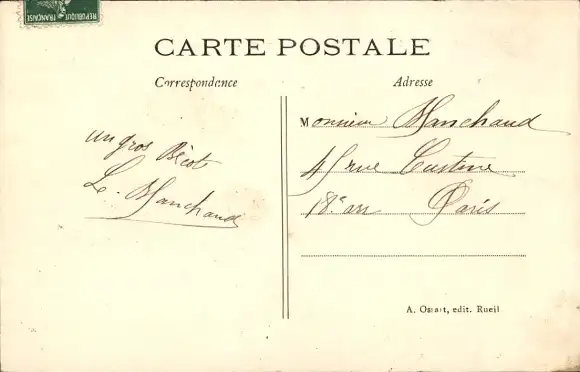 REPUBLIQUE FRANÇAISE
CARTE POSTALE
Correspondance
Adresse
Monsieur Blanchaud
un gros Bécot
L. Blanchaud
rue Custine
18e arr Paris
A. Ossart, edit. Rueil